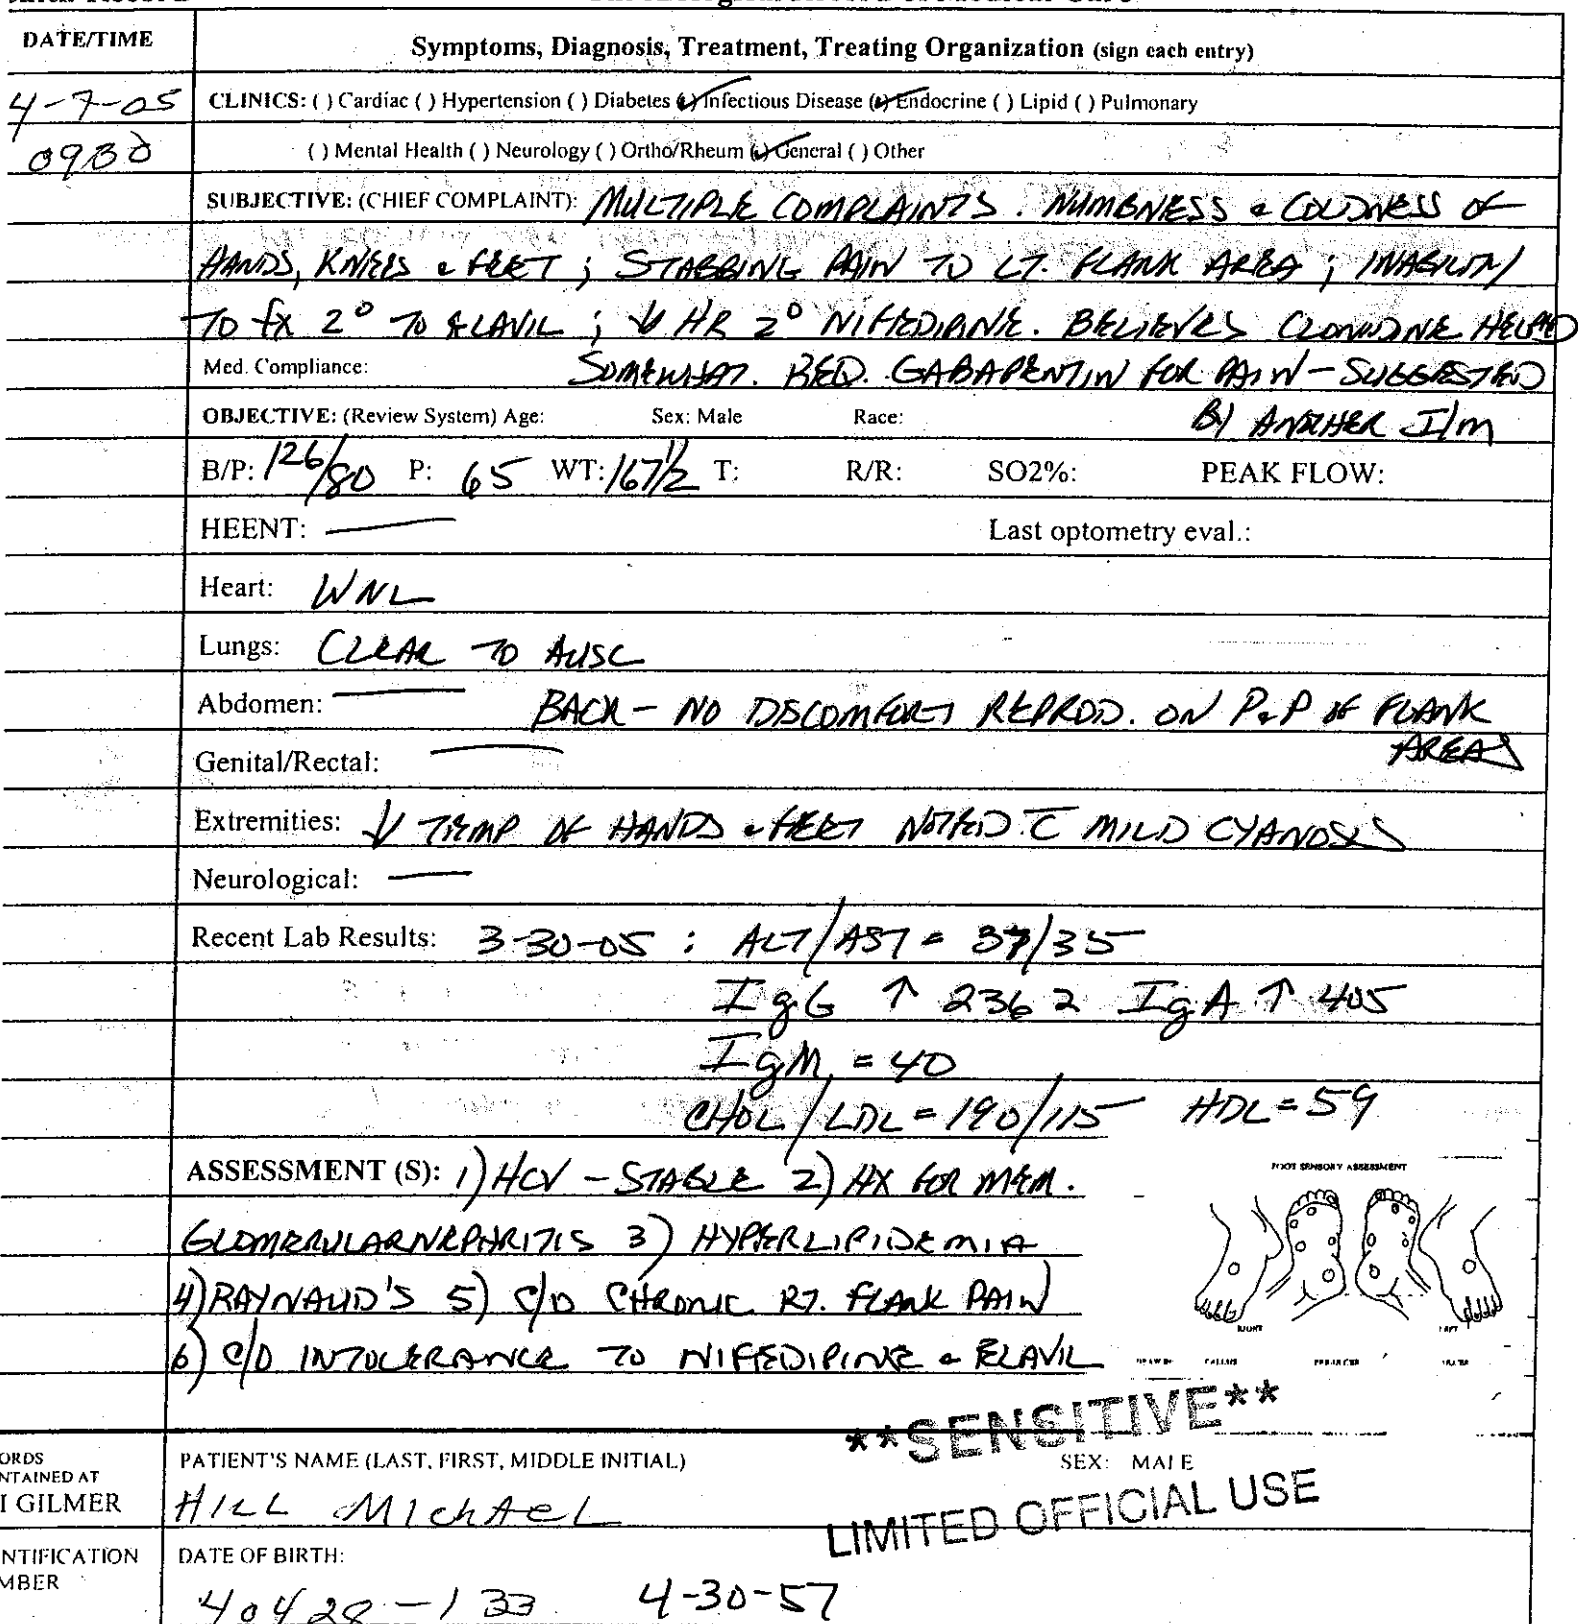 DATE/TIME
Symptoms, Diagnosis, Treatment, Treating Organization (sign each entry)
4-7-05 CLINICS: ( ) Cardiac ( ) Hypertension ( ) Diabetes (✓) Infectious Disease (✓) Endocrine ( ) Lipid ( ) Pulmonary
0930 ( ) Mental Health ( ) Neurology ( ) Ortho/Rheum (✓) General ( ) Other
SUBJECTIVE: (CHIEF COMPLAINT): MULTIPLE COMPLAINTS. NUMBNESS & COLDNESS OF
HANDS, KNEES & FEET; STABBING PAIN TO LT. FLANK AREA; INABILITY
TO fx 2° TO ELAVIL; ↓ HR 2° NIFEDIPINE. BELIEVES CLONIDINE HELPED
Med. Compliance: SOMEWHAT. REQ. GABAPENTIN FOR PAIN - SUGGESTED
OBJECTIVE: (Review System) Age: Sex: Male Race: BY ANOTHER I/m
B/P: 126/80 P: 65 WT: 167 1/2 T: R/R: SO2%: PEAK FLOW:
HEENT: — Last optometry eval.:
Heart: WNL
Lungs: CLEAR TO AUSC
Abdomen: — BACK - NO DISCOMFORT REPROD. ON P&P OF FLANK
AREAS
Genital/Rectal: —
Extremities: ↓ TEMP OF HANDS & FEET NOTED c̄ MILD CYANOSIS
Neurological: —
Recent Lab Results: 3-30-05 : ALT/AST = 37/35
IgG ↑ 2362 IgA ↑ 405
IgM = 40
CHOL/LDL = 190/115 HDL = 59
ASSESSMENT (S): 1) HCV - STABLE 2) HX FOR MEM.
GLOMERULARNEPHRITIS 3) HYPERLIPIDEMIA
4) RAYNAUD'S 5) C/O CHRONIC RT. FLANK PAIN
6) C/O INTOLERANCE TO NIFFEDIPINE & ELAVIL
FOOT SENSORY ASSESSMENT
RIGHT LEFT
**SENSITIVE**
LIMITED OFFICIAL USE
PATIENT'S NAME (LAST, FIRST, MIDDLE INITIAL) SEX: MALE
HILL MichAeL
GILMER
DATE OF BIRTH:
40428-133 4-30-57